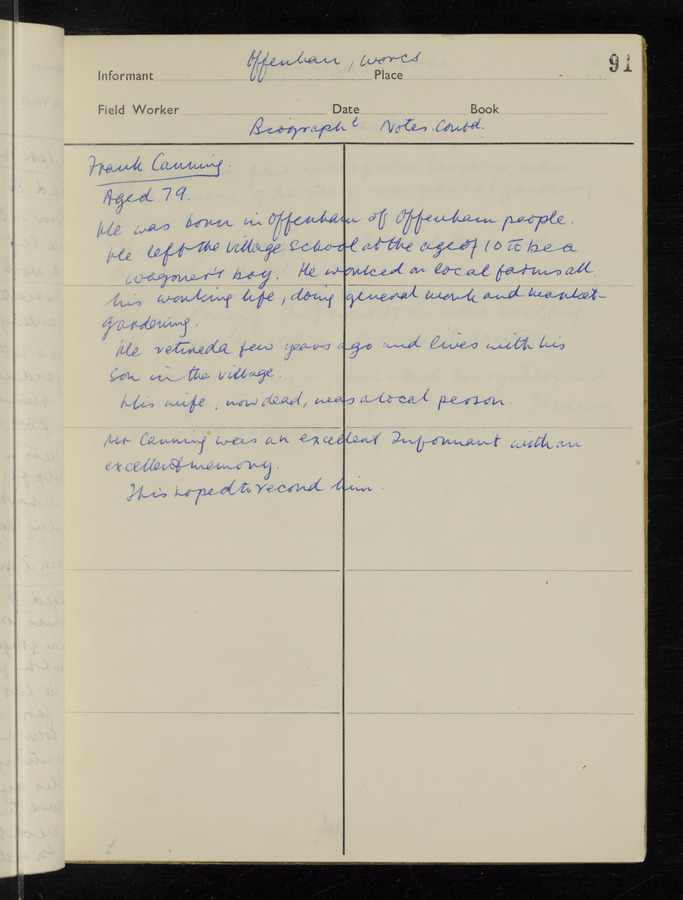 Offenham, Worcs
91
Informant Place
Field Worker Date Book
Biographl. Notes. Contd.
Frank Canning.
Aged 79.
He was born in Offenham of Offenham people.
He left the village school at the age of 10 to be a
wagoner's boy. He worked on local farms all
his working life, doing general work and market-
gardening.
He retired a few years ago and lives with his
son in the village.
His wife, now dead, was a local person.
Mr Canning was an excellent Informant with an
excellent memory.
It is hoped to record him.